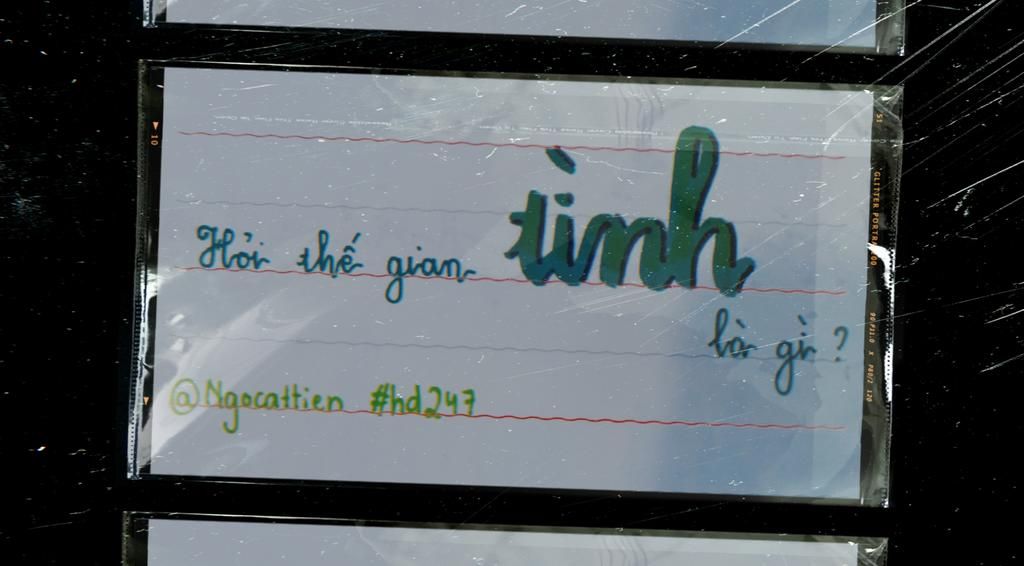 Hỏi thế gian tình
là gì?
@Ngocattien #hd247
10
GLITTER PORTRA